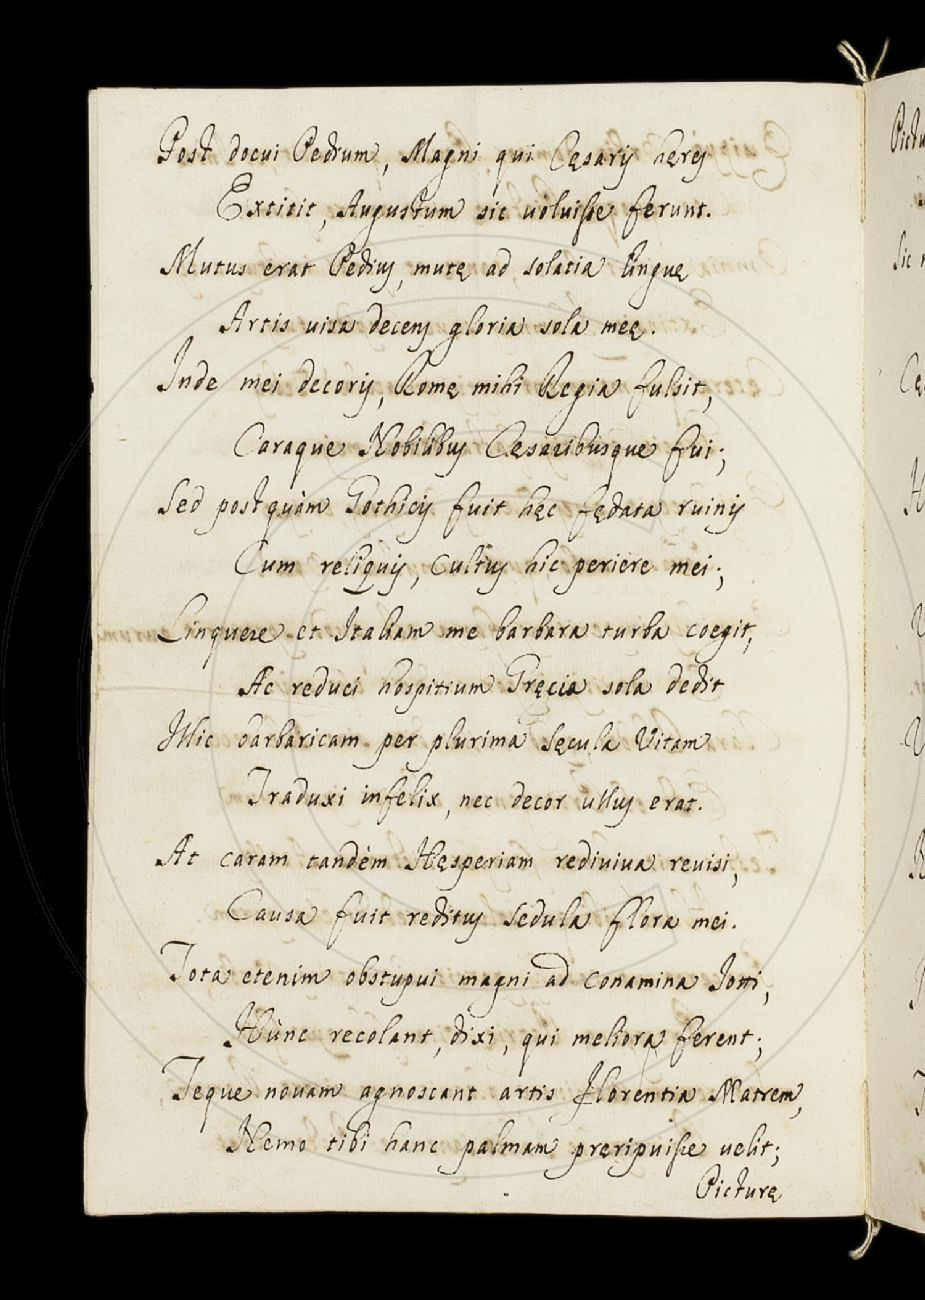 Post docui Pedium, Magni qui Cęsarij hęres
Extitit, Augustum sic uoluiſse ferunt.
Mutus erat Pedius, mutę ad solatia linguę
Artis uisa decens gloria sola meę.
Inde mei decoris, Romę mihi Regia fulsit,
Caraque Nobilibus Cęsaribusque fui;
Sed postquàm Gothicis fuit hęc fędata ruinis
Cum reliquis, cultus hic periere mei;
Linquere et Italiam me barbara turba coegit,
Ac reduci hospitium Gręcia sola dedit
Illic barbaricam per plurima sęcula Vitam
Traduxi infelix, nec decor ullus erat.
At caram tandèm Hęsperiam rediuiua reuisi,
Causa fuit reditus sedula flora mei.
Tota etenim obstupui magni ad conamina Iotti,
Hùnc recolant, dixi, qui meliora ferent;
Teque nouam agnoscant artis Florentia Matrem,
Nemo tibi hanc palmam pręripuiſse uelit;
Picturę
Pictu
Sic
Cę